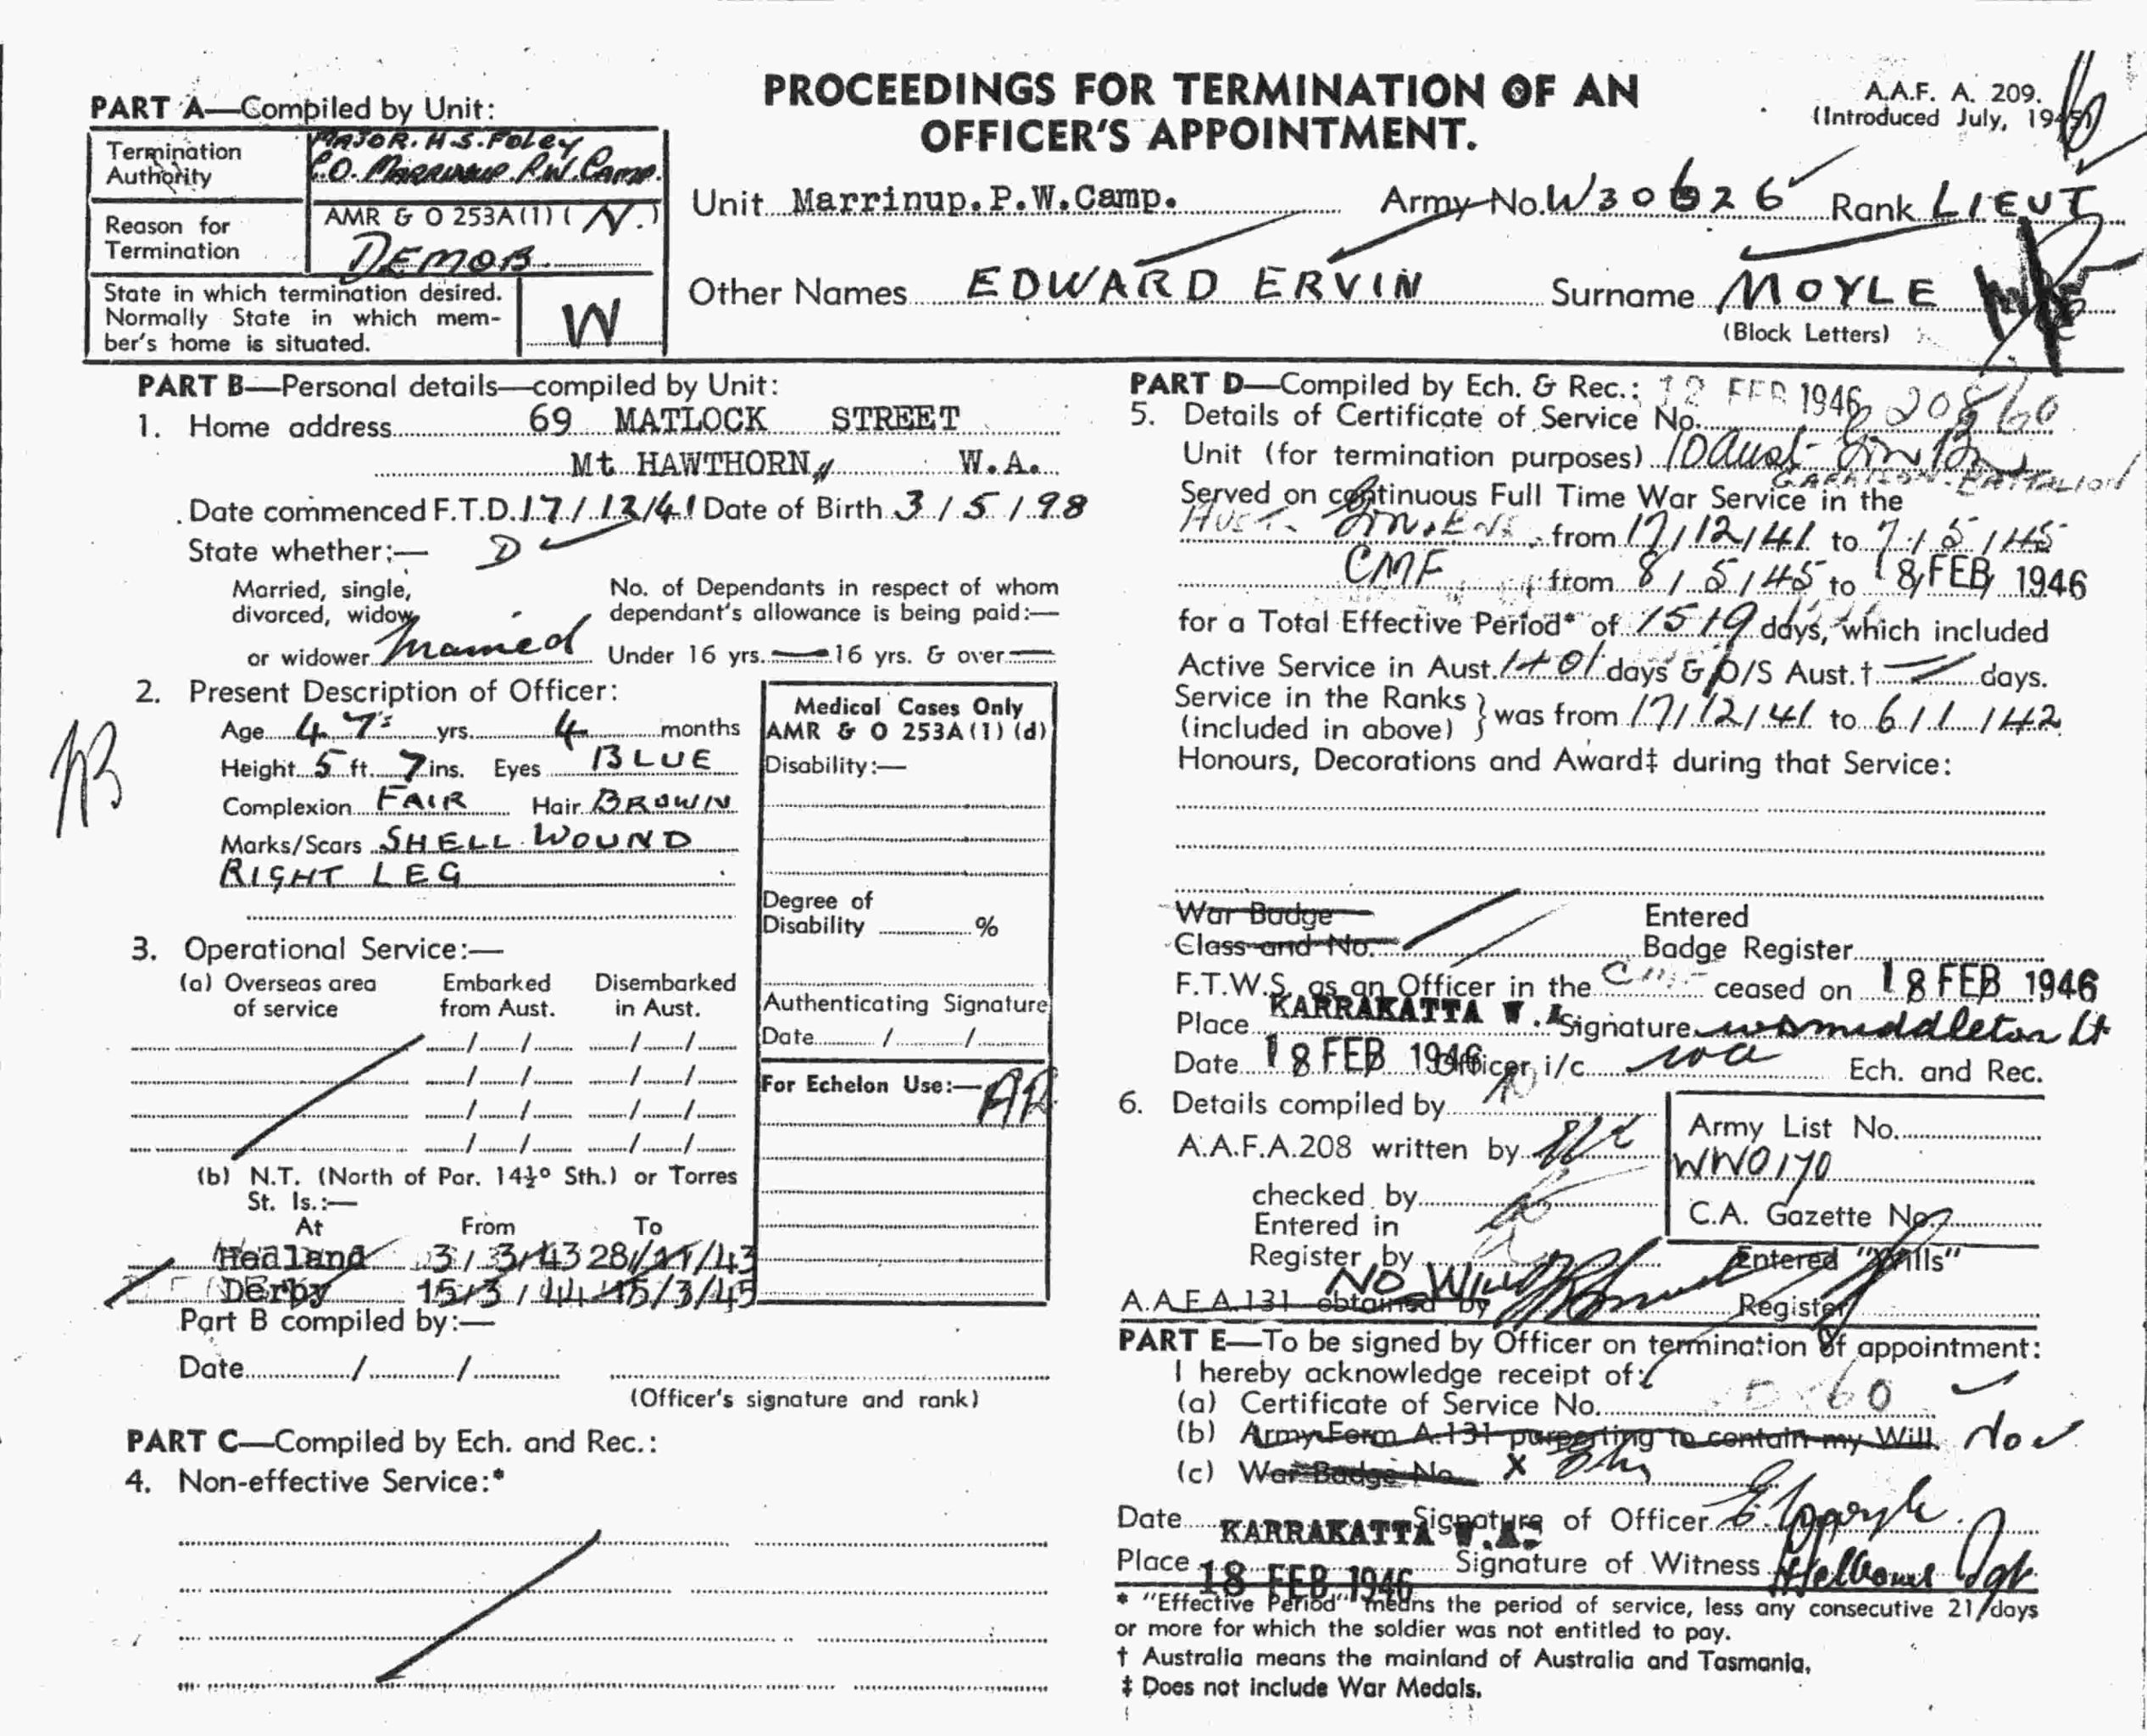 PROCEEDINGS FOR TERMINATION OF AN
OFFICER'S APPOINTMENT.
A.A.F. A. 209.
(Introduced July, 1945)
PART A—Compiled by Unit:
Termination
Authority
MAJOR. H.S. FOLEY
C.O. MARRINUP. P.W. CAMP.
Reason for
Termination
AMR & O 253A(1) ( N. )
DEMOB.
State in which termination desired.
Normally State in which mem-
ber's home is situated.
W
Unit Marrinup.P.W.Camp. Army No. W30626 Rank LIEUT
Other Names EDWARD ERVIN Surname MOYLE
(Block Letters)
PART B—Personal details—compiled by Unit:
1. Home address 69 MATLOCK STREET
Mt HAWTHORN, W.A.
Date commenced F.T.D. 17/12/41 Date of Birth 3/5/98
State whether:— D
Married, single,
divorced, widow
or widower Married
No. of Dependants in respect of whom
dependant's allowance is being paid:—
Under 16 yrs. — 16 yrs. & over —
2. Present Description of Officer:
Age 47 yrs. 4 months
Height 5 ft. 7 ins. Eyes BLUE
Complexion FAIR Hair BROWN
Marks/Scars SHELL WOUND
RIGHT LEG
Medical Cases Only
AMR & O 253A(1) (d)
Disability:—
Degree of
Disability %
Authenticating Signature
Date / /
For Echelon Use:—
3. Operational Service:—
(a) Overseas area of service
Embarked from Aust.
Disembarked in Aust.
(b) N.T. (North of Par. 14½° Sth.) or Torres
St. Is.:—
At From To
Hedland 3/3/43 28/11/43
Derby 15/3/44 15/3/45
Part B compiled by:—
Date / /
(Officer's signature and rank)
PART C—Compiled by Ech. and Rec.:
4. Non-effective Service:*
PART D—Compiled by Ech. & Rec.: 12 FEB 1946
5. Details of Certificate of Service No. 20860
Unit (for termination purposes) 10 Aust Grn Bn
GARRISON BATTALION
Served on continuous Full Time War Service in the
from 17/12/41 to 7/5/45
CMF from 8/5/45 to 18 FEB 1946
for a Total Effective Period* of 1519 days, which included
Active Service in Aust. days & O/S Aust.† — days.
Service in the Ranks
(included in above) } was from 17/12/41 to 6/1/42
Honours, Decorations and Award‡ during that Service:
War Badge
Class and No.
Entered
Badge Register
F.T.W.S. as an Officer in the CMF ceased on 18 FEB 1946
Place KARRAKATTA W.A. Signature W S Middleton Lt
Date 18 FEB 1946 Officer i/c WA Ech. and Rec.
6. Details compiled by
A.A.F.A.208 written by
checked by
Entered in
Register by
Army List No.
WW0170
C.A. Gazette No.
No Will
Entered "Wills"
A.A.F.A.131 obtained by
Register
PART E—To be signed by Officer on termination of appointment:
I hereby acknowledge receipt of:
(a) Certificate of Service No.
(b) Army Form A.131 purporting to contain my Will.
(c) War Badge No. X
Date KARRAKATTA W.A. Signature of Officer E. E. Moyle
Place 18 FEB 1946 Signature of Witness
* "Effective Period" means the period of service, less any consecutive 21 days
or more for which the soldier was not entitled to pay.
† Australia means the mainland of Australia and Tasmania.
‡ Does not include War Medals.